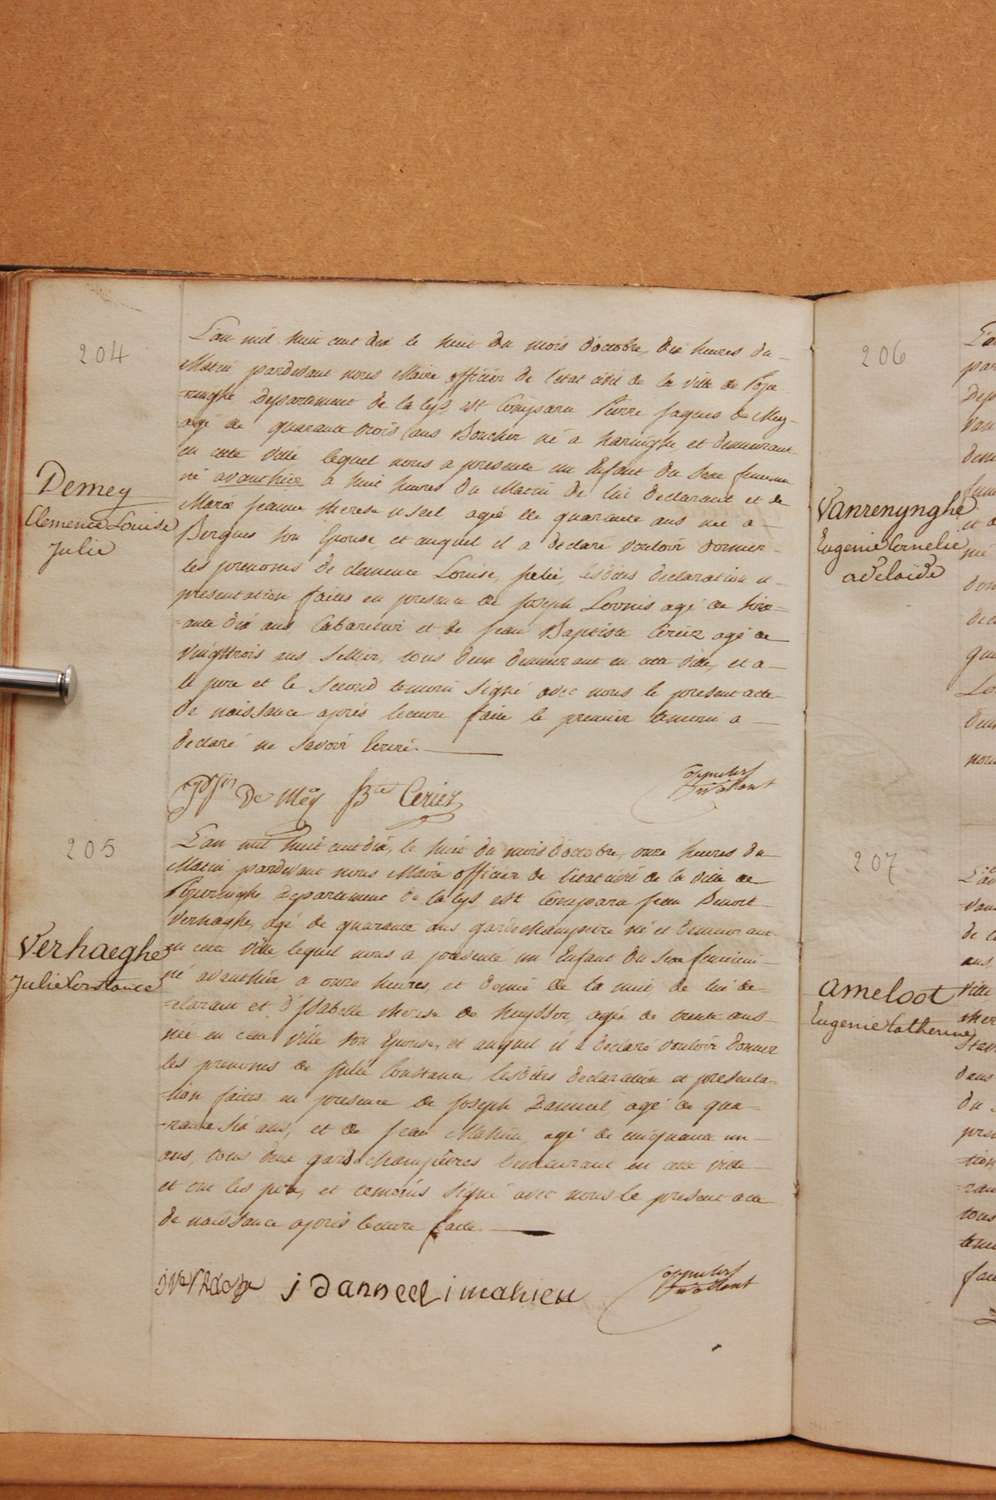 204
Demey
Clemence Louise
Julie
L'an mil huit cent dix le huit du mois d'octobre, dix heures du
Matin pardevant nous Maire officier de l'état civil de la ville de Pope
ringhe Departement de la Lys, est Comparu Pierre Jaques de Mey
agé de quarante trois ans Boucher né a haringhe et demeurant
en cette ville lequel nous a presenté un Enfant du Sexe feminin
né avanthier a huit heures du Matin de lui declarant et de
Marie Jeanne therese agée de quarante ans née a
Bergues son Epouse et auquel il a declaré vouloir donner
les prenoms de clemence Louise, julie, lesdites declaration et
presentation faites en presence de Joseph agé de soix-
-ante dix ans Cabaretier et de jean Baptiste Cerier agé de
vingttrois ans Sellier, tous deux demeurant en cette ville, et a
le pere et le Second temoin Signé avec nous le present acte
de naissance après lecture faite le premier temoin a
declaré ne Savoir Ecrire.
De Mey Bte Cerier
205
Verhaeghe
Julie Constance
L'an mil huit cent dix, le huit du mois d'octobre, onze heures du
Matin pardevant nous Maire officier de l'état civil de la ville de
Poperinghe Departement de la Lys est Comparu jean Benoit
Verhaeghe, agé de quarante ans gardechampetre né et demeurant
en cette ville lequel nous a presenté un Enfant du Sexe feminin
né avanthier a onze heures, et demie de la nuit de lui de-
-clarant et d'Isabelle therese de huysser agée de trente ans
née en cette ville son Epouse, et auquel il a declaré vouloir donner
les prenoms de julie Constance, lesdites declaration et presenta-
-tion faites en presence de Joseph Danneel agé de qua-
-rante Six ans, et de jean Mahieu, agé de cinquante un
ans, tous deux gardes champêtres demeurant en cette ville
et ont les pere, et temoins Signé avec nous le present acte
de naissance après lecture faite
j Danneel i mahieu
206
Vanrenynghe
Eugenie Cornelie
adelaïde
207
ameloot
Eugenie Catherine